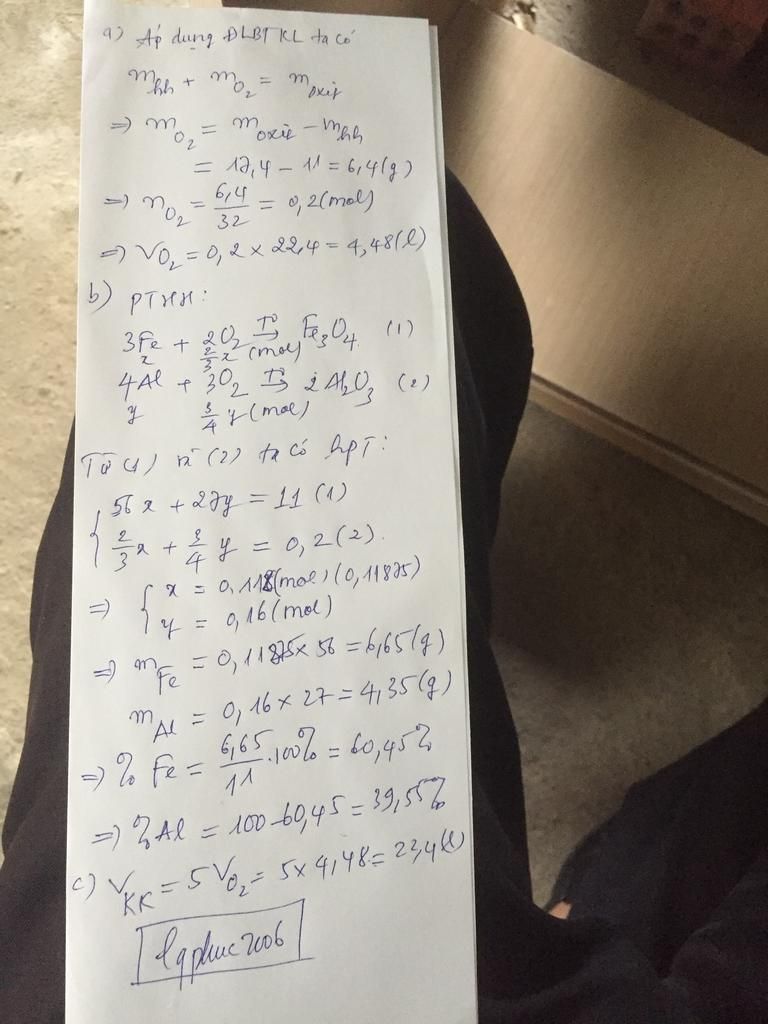 a) Áp dụng ĐLBTKL ta có
m_hh + m_O₂ = m_oxit
=> m_O₂ = m_oxit - m_hh
= 17,4 - 11 = 6,4 (g)
=> n_O₂ = 6,4/32 = 0,2 (mol)
=> V_O₂ = 0,2 × 22,4 = 4,48 (l)
b) PTHH:
3Fe + 2O₂ T°→ Fe₃O₄ (1)
x 2/3 x (mol)
4Al + 3O₂ T°→ 2Al₂O₃ (2)
y 3/4 y (mol)
Từ (1) và (2) ta có hpT:
{ 56x + 27y = 11 (1)
2/3 x + 3/4 y = 0,2 (2).
=> { x = 0,118 (mol) (0,11875)
y = 0,16 (mol)
=> m_Fe = 0,11875 × 56 = 6,65 (g)
m_Al = 0,16 × 27 = 4,35 (g)
=> % Fe = 6,65/11 . 100% = 60,45%
=> % Al = 100 - 60,45 = 39,55%
c) V_KK = 5 V_O₂ = 5 × 4,48 = 23,4 (l)
lqphuc2006